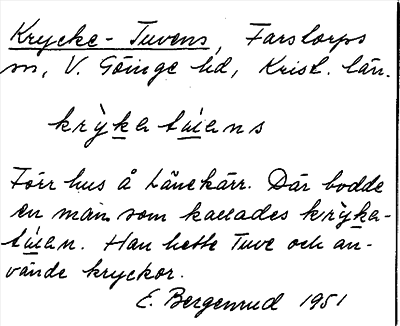 Krycke-Tuvens, Farstorps
sn, V. Göinge hd, Krist. län.
krỳke túens
Förr hus å Lönekärr. Där bodde
en man som kallades krỳke-
túen. Han hette Tuve och an-
vände kryckor.
E. Bergenrud 1951